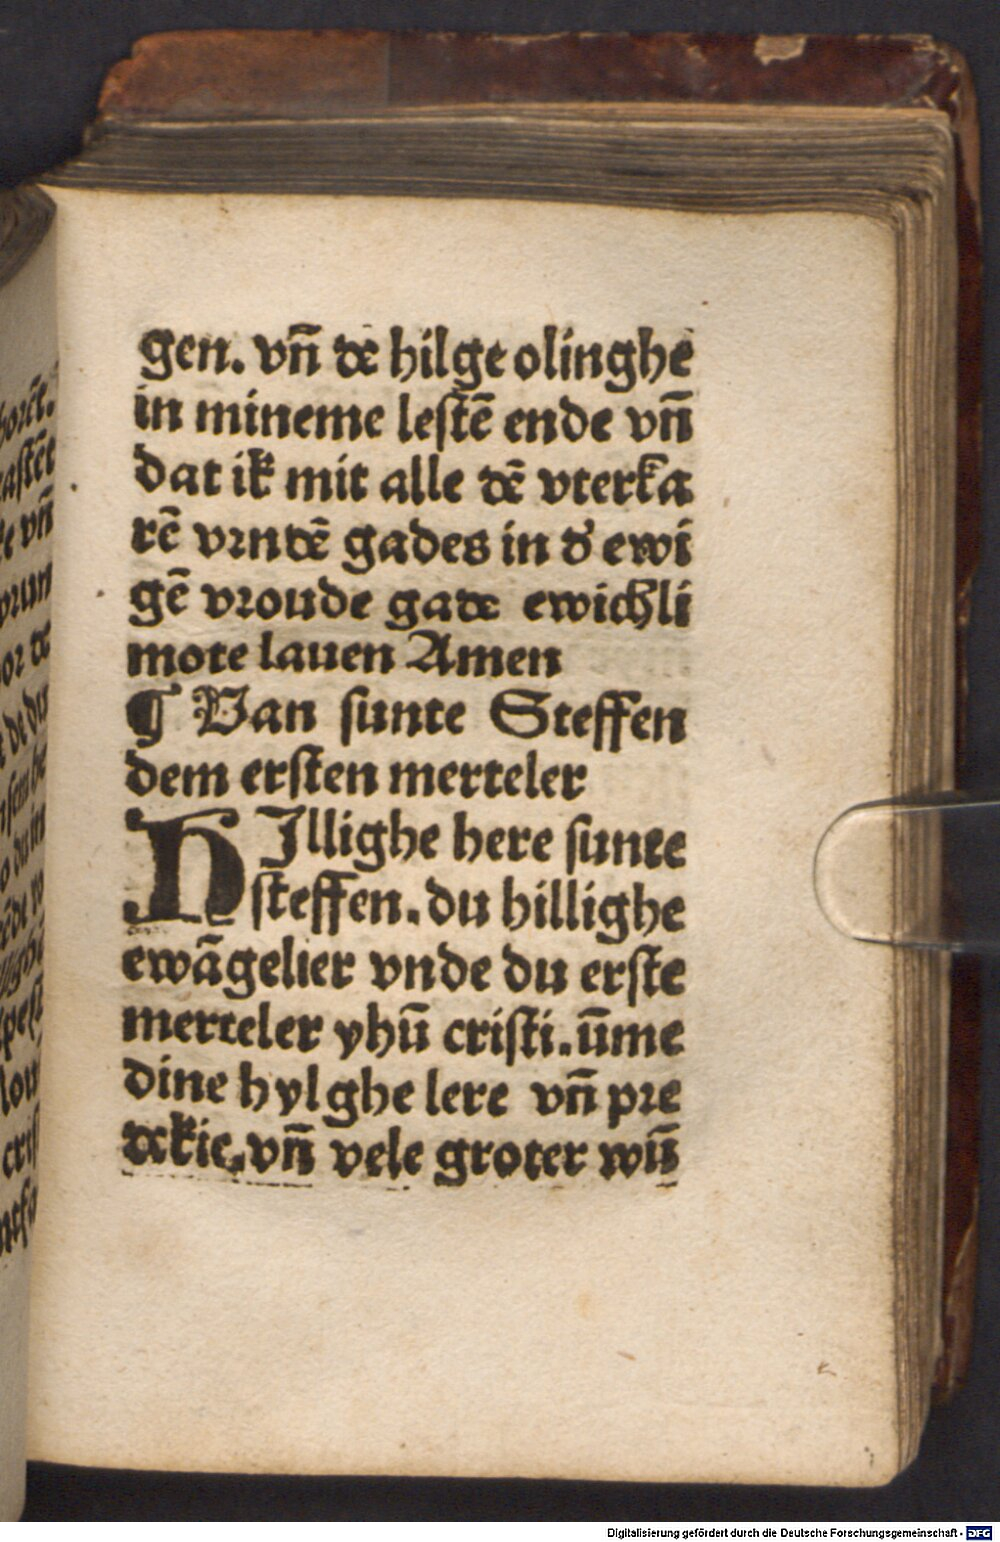 gen. vn̄ de hilge olinghe
in mineme leſtē ende vn̄
dat ik mit alle dē vterka
rē vrndē gades in d' ewi
gē vroude gade ewichli
mote lauen Amen
¶ Van ſunte Steffen
dem erſten merteler
HIllighe here ſunte
ſteffen. du hillighe
ewāgelier vnde du erſte
merteler yhū criſti. ūme
dine hylghe lere vn̄ pre
dekie. vn̄ vele groter wū
Digitalisierung gefördert durch die Deutsche Forschungsgemeinschaft - DFG